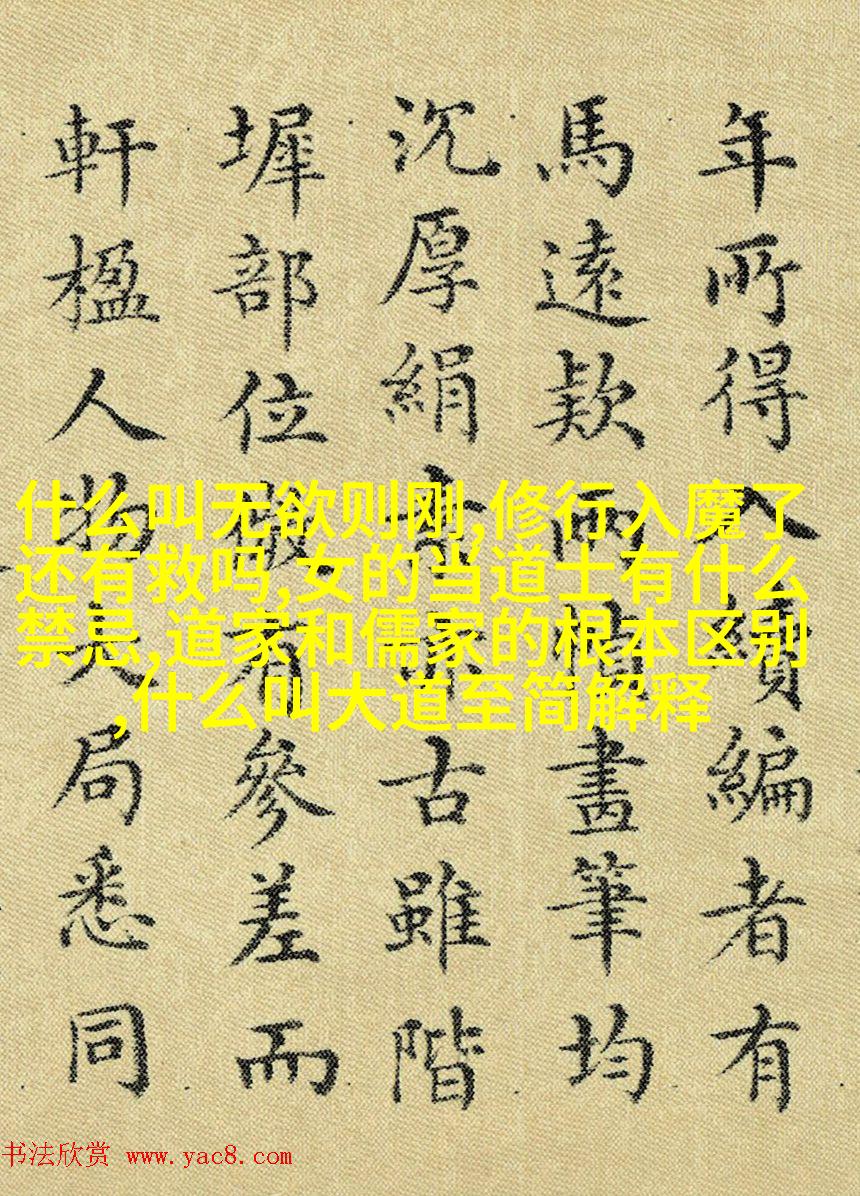 年所得入續編者有
馬遠款兩幀畫筆均
沉厚絹素亦古雖階
墀部位有參差而
軒楹人物大局悉同
什么叫无欲则刚,修行入魔了
还有救吗,女的当道士有什么
禁忌,道家和儒家的根本区别
,什么叫大道至简解释
书法欣赏 www.yac8.com